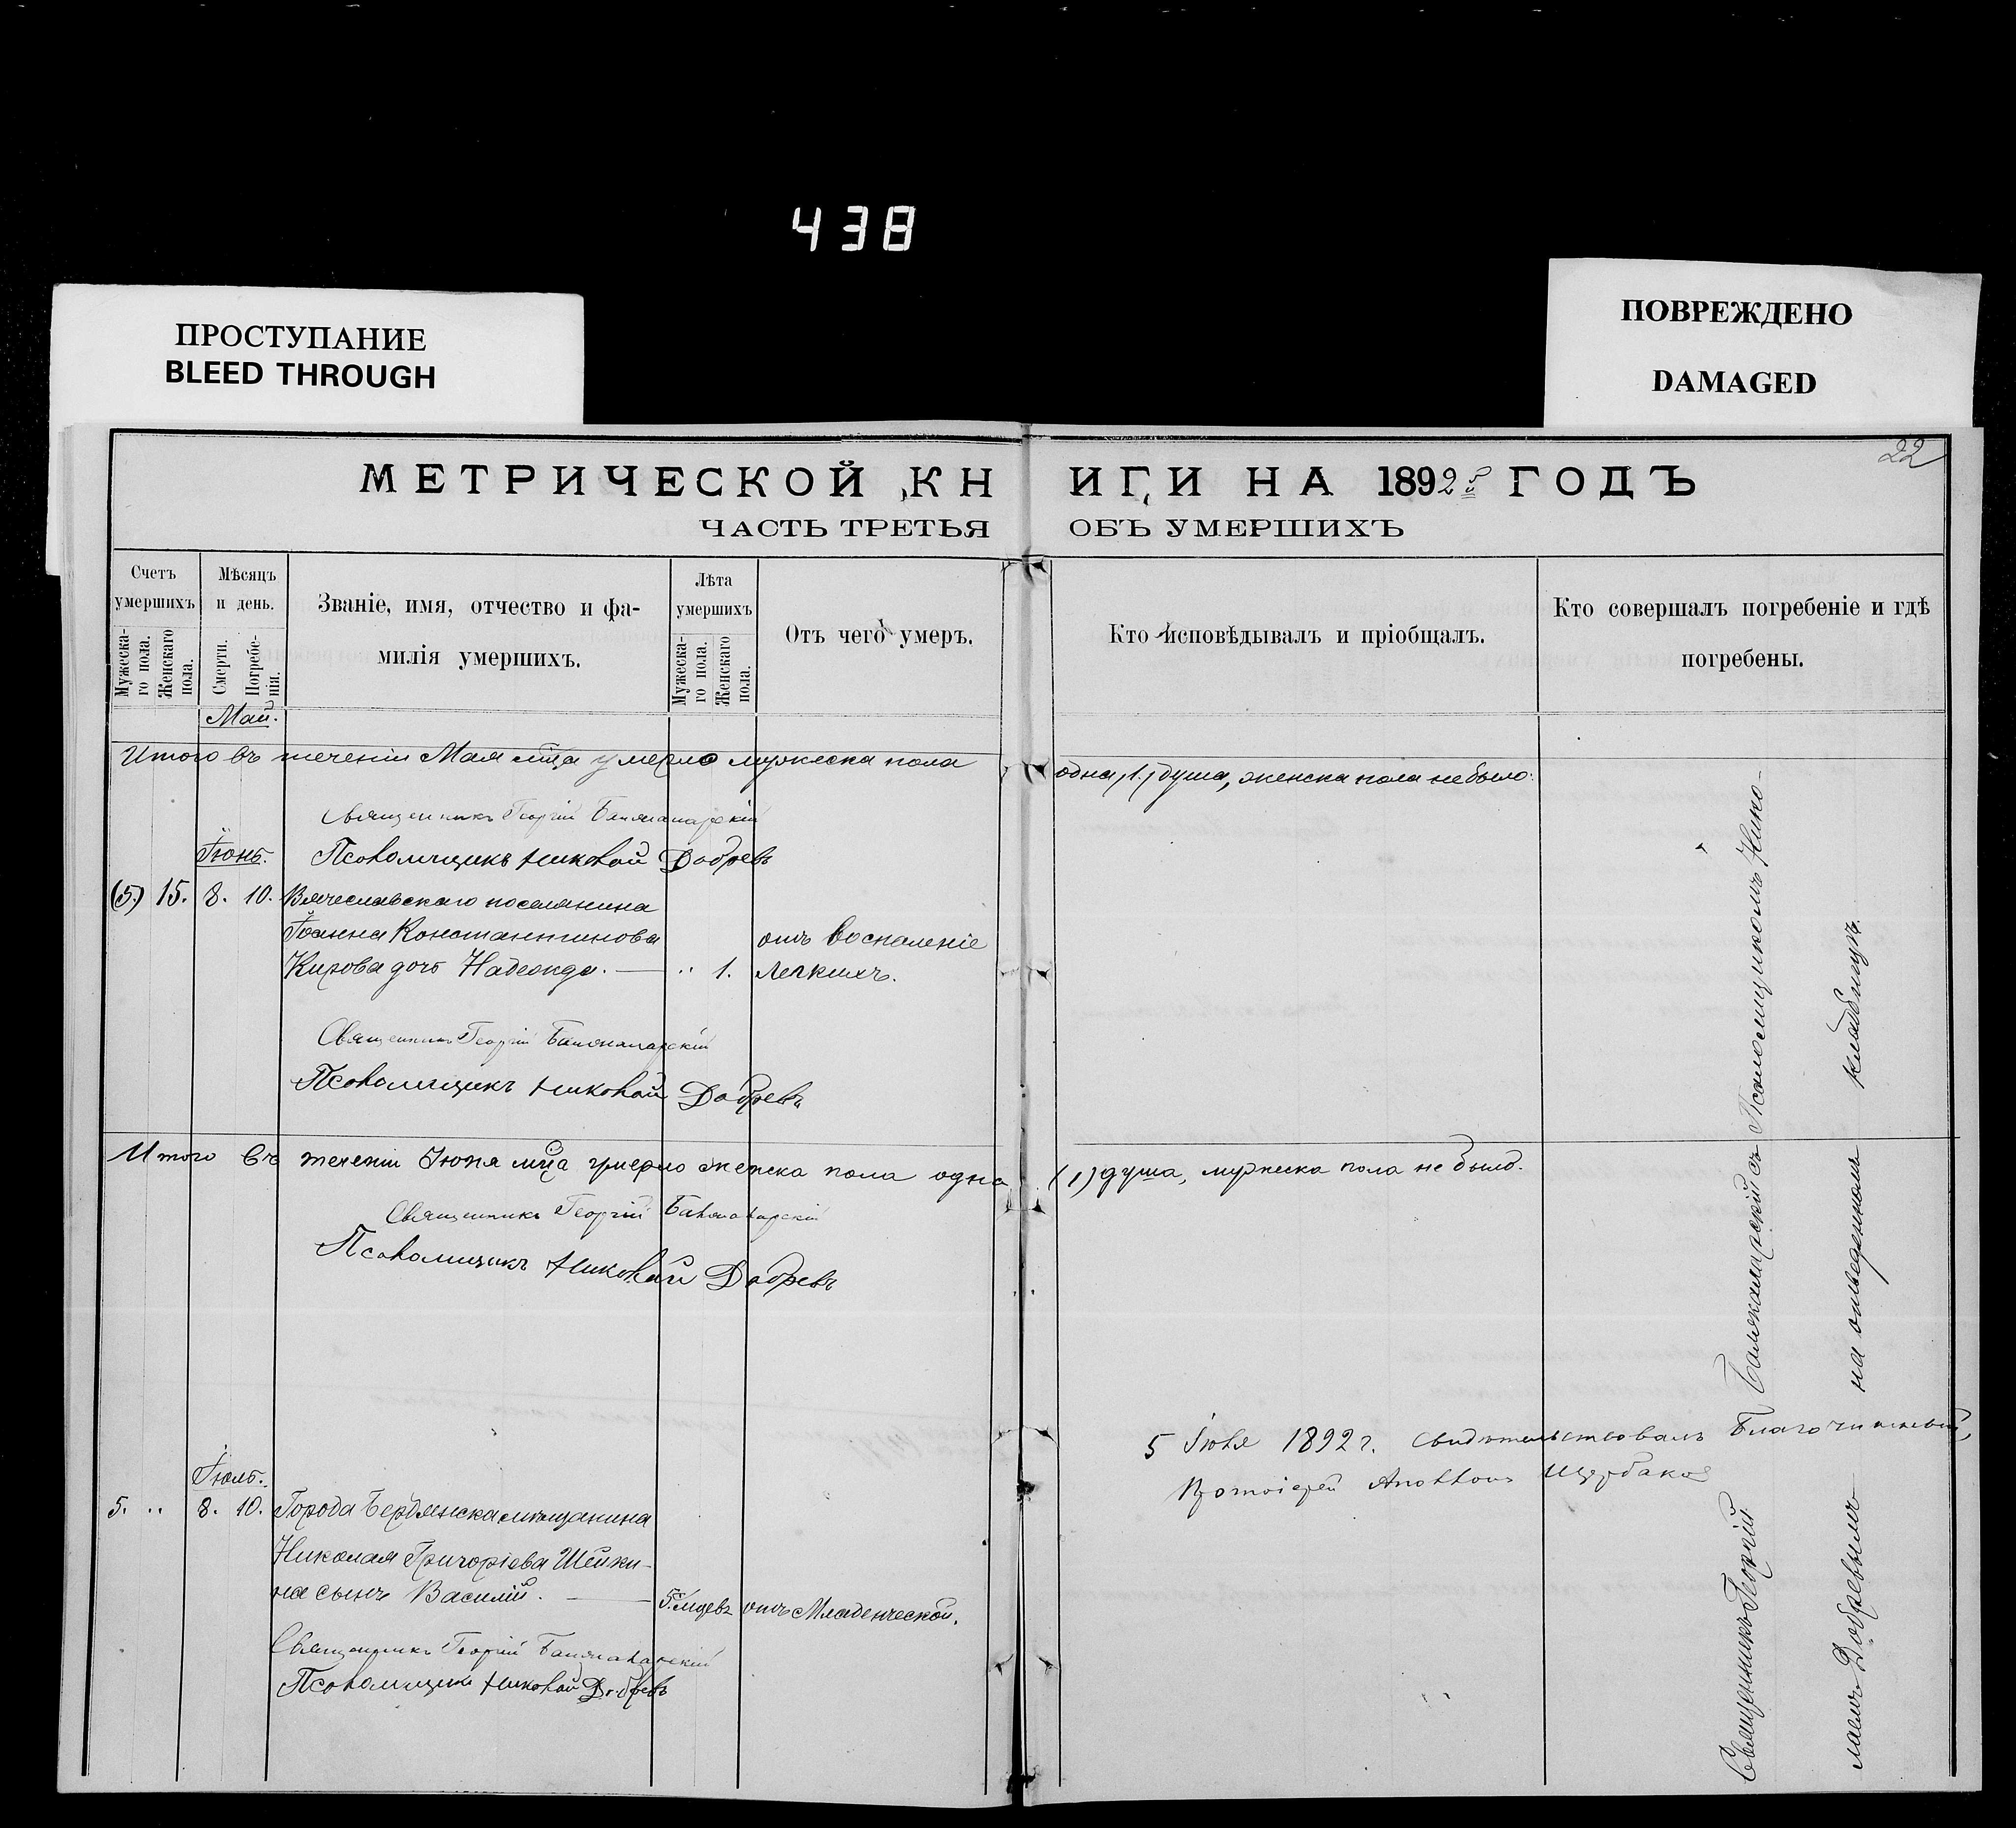 438
ПРОСТУПАНИЕ
BLEED THROUGH
ПОВРЕЖДЕНО
DAMAGED
22
МЕТРИЧЕСКОЙ КНИГИ НА 1892 ГОДЪ
ЧАСТЬ ТРЕТЬЯ ОБЪ УМЕРШИХЪ
Счетъ умершихъ
Мужеска-го пола.
Женскаго пола.
Мѣсяцъ и день.
Смерти.
Погребе-нія.
Званіе, имя, отчество и фа-
милія умершихъ.
Лѣта умершихъ
Мужеска-го пола.
Женскаго пола.
Отъ чего умеръ.
Кто исповѣдывалъ и пріобщалъ.
Кто совершалъ погребеніе и гдѣ
погребены.
Май.
Итого въ теченіи Мая мца умерло мужеска пола одна (1) душа, женска пола не было.
Священникъ Георгій
Іюнь.
Псаломщикъ Николай Добревъ
(5) 15. 8. 10. Вячеславскаго поселянина
Іоанна Константинова отъ воспаленіе
Кирова дочь Надежда. — " 1. легкихъ.
Священникъ Георгій
Псаломщикъ Николай Добревъ
Итого въ теченіи Іюня мца умерло женска пола одна (1) душа, мужеска пола не было.
Священникъ Георгій
Псаломщикъ Николай Добревъ
5 Іюля 1892 г. свидѣтельствовалъ Благочинный,
Протоіерей Щербаков
Іюль.
5. " 8. 10. Города Бердянска мѣщанина
Николая Григоріева Шейки-
на сынъ Василій. — 5. мцевъ отъ Младенческой.
Священникъ Георгій
Псаломщикъ Николай Добревъ
Священникъ Георгій съ Псаломщикомъ Нико-
лаемъ Добревымъ на отведенномъ кладбищѣ.